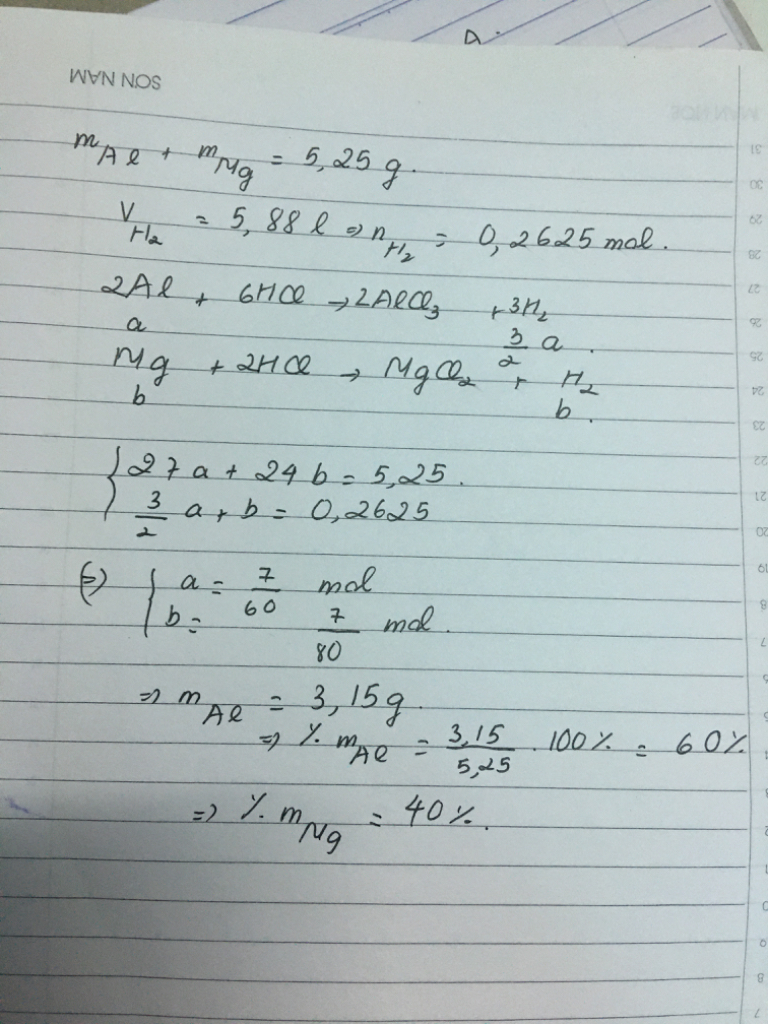 SON NAM
m_Al + m_Mg = 5,25 g.
V_H₂ = 5,88 l => n_H₂ = 0,2625 mol.
2Al + 6HCl → 2AlCl₃ + 3H₂
a 3/2 a.
Mg + 2HCl → MgCl₂ + H₂
b b.
{ 27a + 24b = 5,25.
3/2 a + b = 0,2625
(=) { a = 7/60 mol
b = 7/80 mol.
=> m_Al = 3,15 g.
=> % m_Al = 3,15/5,25 . 100% = 60%
=> % m_Mg = 40%.